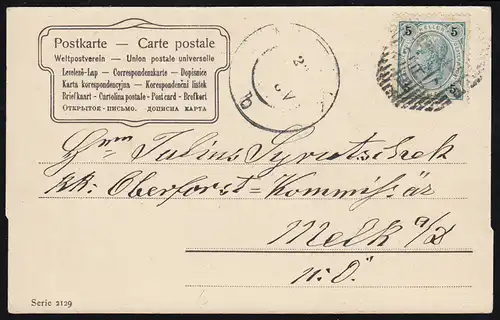 Postkarte — Carte postale
Weltpostverein — Union postale universelle
Levelező-Lap — Correspondenzkarte — Dopisnice
Karta korespondencyjna — Korespondenční lístek
Briefkaart - Cartolina postale - Post card - Brefkort
Открытое-письмо. дописна карта
5 5
Julius
kk: Oberforst = Kommissär
Melk a/D
N. Ö.
Serie 2129